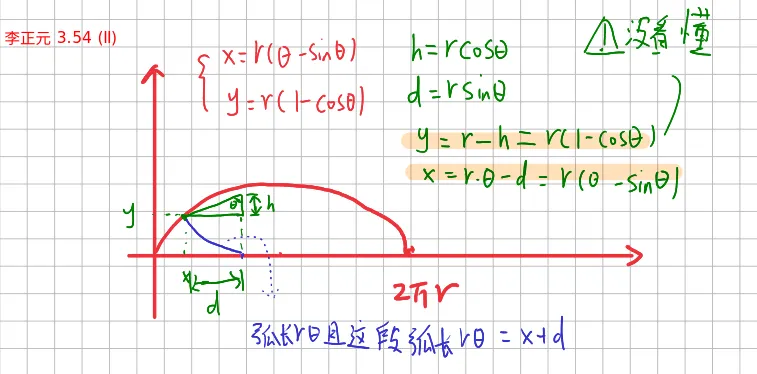 李正元 3.54 (II)
x=r(θ-sinθ)
y=r(1-cosθ)
h=rcosθ
d=rsinθ
y=r-h=r(1-cosθ)
x=r·θ-d=r(θ-sinθ)
⚠没看懂
y
θ
h
x
d
2πr
弧长rθ且这段弧长rθ=x+d